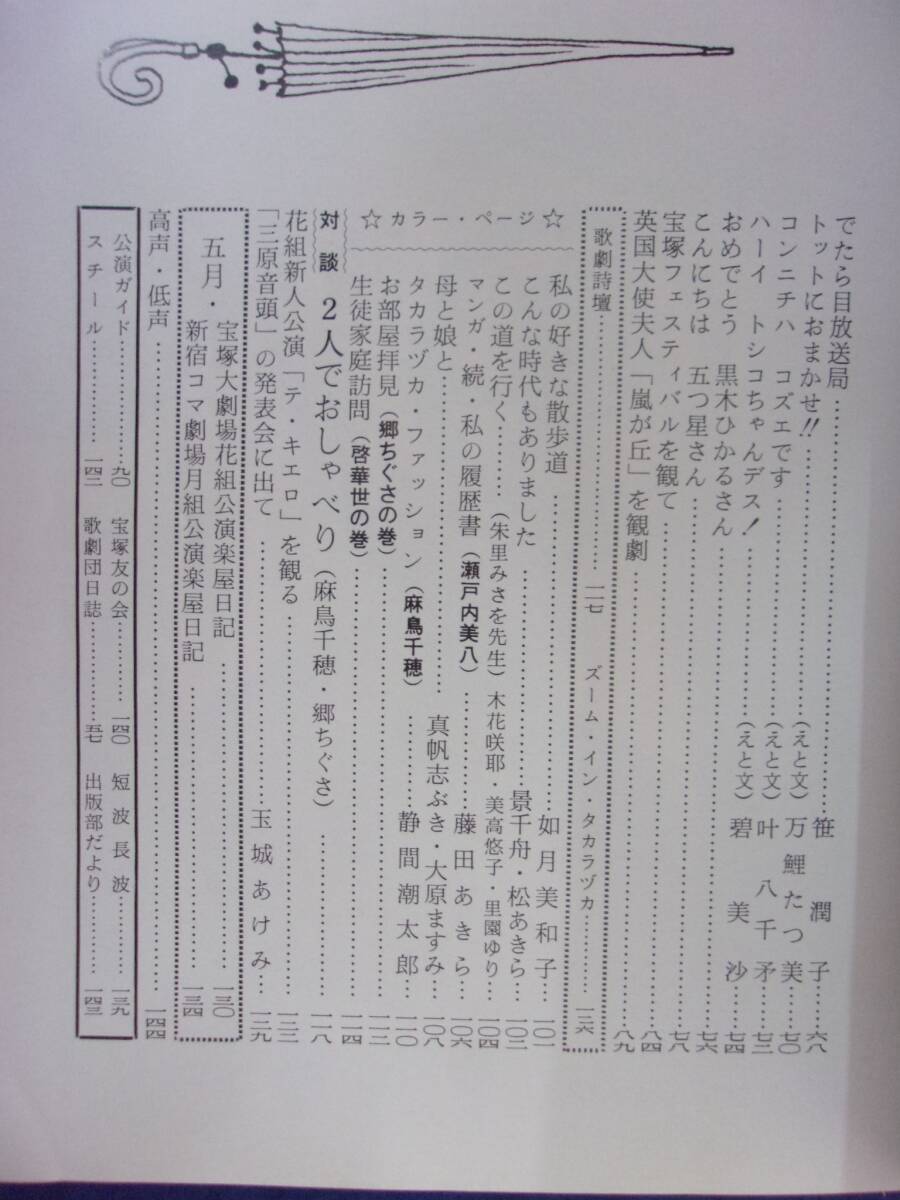 でたら目放送局……笹潤子…六八
トットにおまかせ!!……(えと文)万鯉たつ美…七〇
コンニチハ コズエです……(えと文)叶八千矛…七三
ハーイ トシコちゃんデス!……(えと文)碧美沙…七四
おめでとう 黒木ひかるさん……七六
こんにちは 五つ星さん……七八
宝塚フェスティバルを観て……八四
英国大使夫人「嵐が丘」を観劇……八九
歌劇詩壇……一一七
ズーム・イン・タカラヅカ……一三六
☆カラー・ページ☆
私の好きな散歩道……如月美和子…一〇一
こんな時代もありました……景千舟・松あきら…一〇二
この道を行く……(朱里みさを先生)木花咲耶・美高悠子・里園ゆり…一〇四
マンガ・続・私の履歴書(瀬戸内美八)……藤田あきら…一〇六
母と娘と……真帆志ぶき・大原ますみ…一〇八
タカラヅカ・ファッション(麻鳥千穂)……静間潮太郎…一一〇
お部屋拝見(郷ちぐさの巻)……一一二
生徒家庭訪問(啓華世の巻)……一一四
対談 2人でおしゃべり(麻鳥千穂・郷ちぐさ)……一一八
花組新人公演「テ・キエロ」を観る……一二二
「三原音頭」の発表会に出て……玉城あけみ…一二九
五月・
宝塚大劇場花組公演楽屋日記……一三〇
新宿コマ劇場月組公演楽屋日記……一三四
高声・低声……一四四
公演ガイド……九〇
宝塚友の会……一四〇
短波長波……一三九
スチール……一四二
歌劇団日誌……五七
出版部だより……一四三